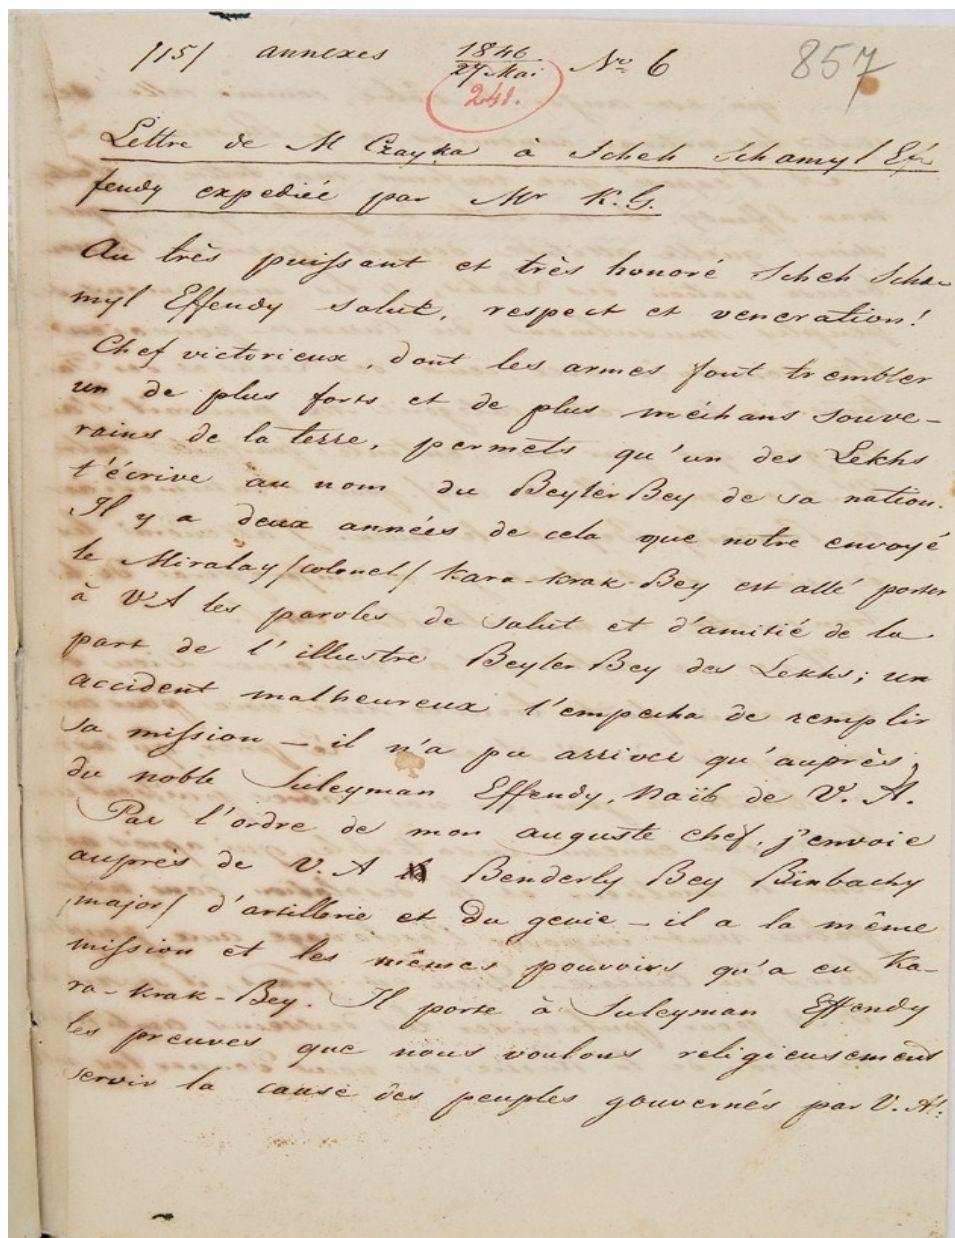 /15/ annexes 1846 27 Mai No 6 857
241.
Lettre de M Czayka à Scheh Schamyl Ef-
fendy expediée par Mr K. G.
Au très puissant et très honoré Scheh Scha-
myl Effendy salut, respect et veneration!
Chef victorieux, dont les armes font trembler
un de plus forts et de plus méchans souve-
rains de la terre, permets qu'un des Lekhs
t'écrive au nom du BeylerBey de sa nation.
Il y a deux années de cela que notre envoyé
le Miralay /colonel/ Kara-Krak-Bey est allé porter
à VA les paroles de salut et d'amitié de la
part de l'illustre BeylerBey des Lekhs; un
accident malheureux l'empecha de remplir
sa mission – il n'a pu arriver qu'auprès
du noble Suleyman Effendy, Naïb de V. A.
Par l'ordre de mon auguste chef, j'envoie
auprès de V. A Benderly Bey Binbachy
/major/ d'artillerie et du genie – il a la même
mission et les mêmes pouvoirs qu'a eu Ka-
ra-Krak-Bey. Il porte à Suleyman Effendy
les preuves que nous voulons religieusement
servir la cause des peuples gouvernés par V. A.